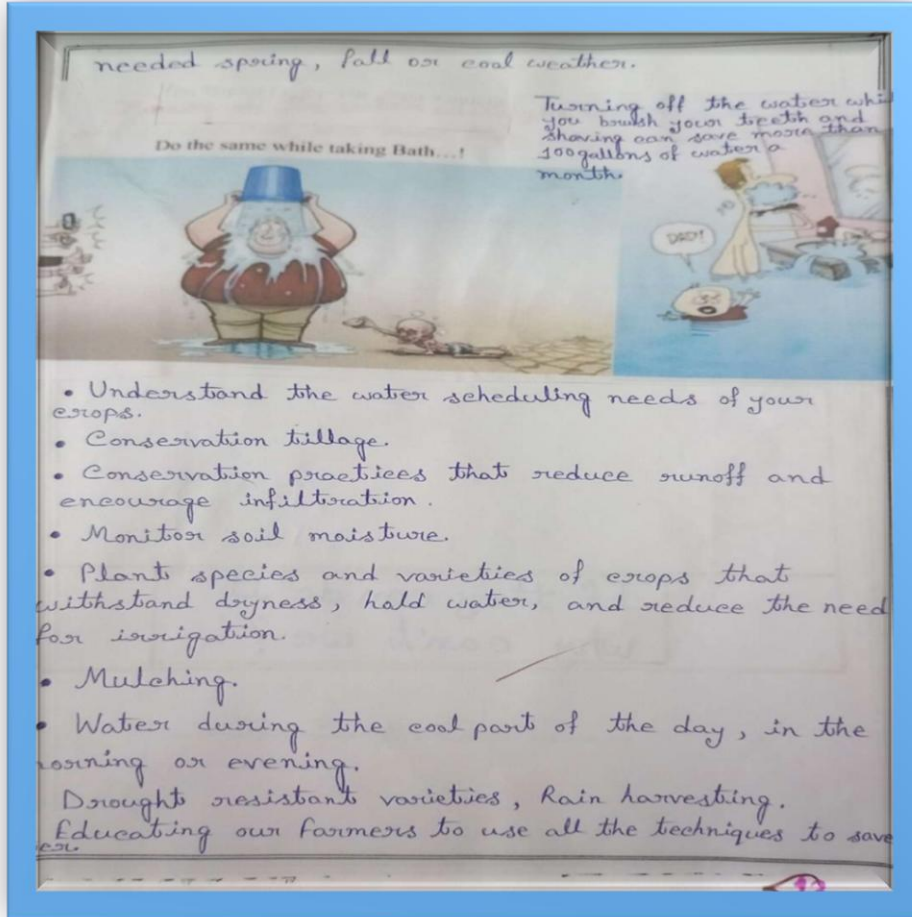 needed spring, fall or cool weather.
Turning off the water whi
you brush your teeth and
shaving can save more than
100gallons of water a
month.
Do the same while taking Bath...!
DAD!
• Understand the water scheduling needs of your
crops.
• Conservation tillage.
• Conservation practices that reduce runoff and
encourage infilteration.
• Monitor soil moisture.
• Plant species and varieties of crops that
withstand dryness, hold water, and reduce the need
for irrigation.
• Mulching.
• Water during the cool part of the day, in the
orning or evening.
Drought resistant varieties, Rain harvesting.
Educating our farmers to use all the techniques to save
er.